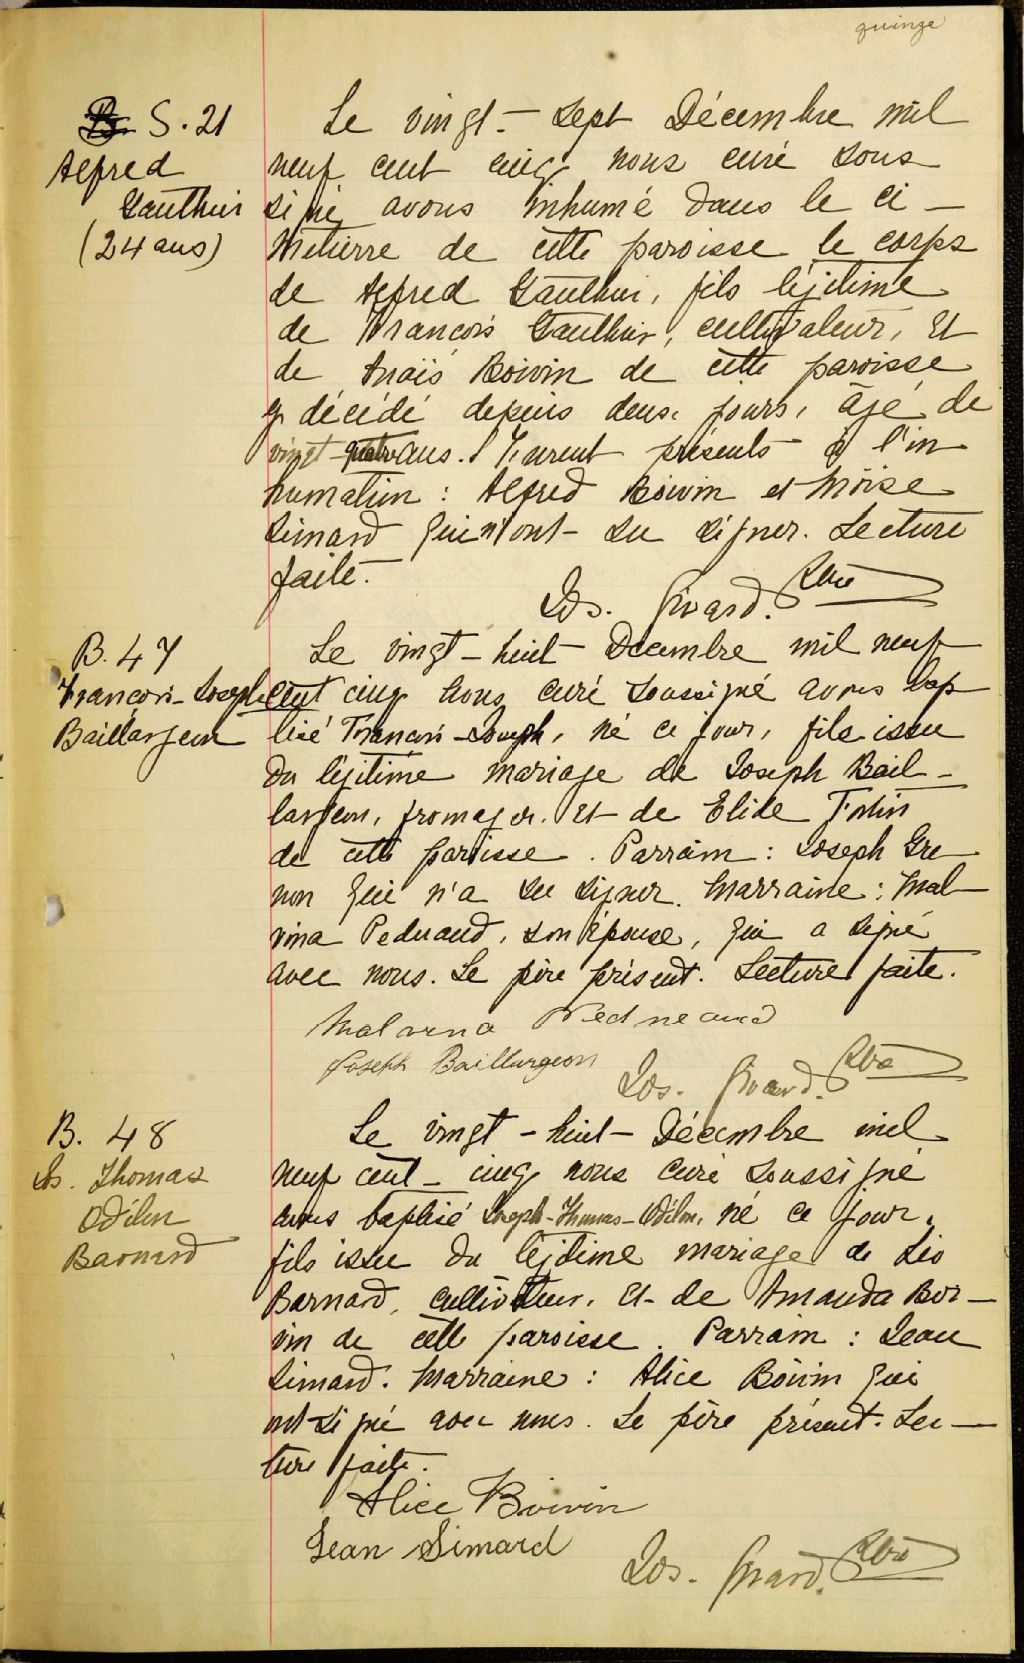 quinze
B. S. 21
Alfred
Gauthier
(24 ans)
Le vingt-sept Décembre mil
neuf cent cinq nous curé sous
signé avons inhumé dans le ci-
metierre de cette paroisse le corps
de Alfred Gauthier, fils légitime
de Francois Gauthier, cultivateur, et
de Anaïs Boivin de cette paroisse
décédé depuis deux jours, âgé de
vingt-quatre ans. Furent présents à l'in
humation : Alfred Boivin et Moïse
Simard qui n'ont su signer. Lecture
faite.
Jos. Girard. Ptre
B. 47
François-Joseph
Baillargeon
Le vingt-huit Decembre mil neuf
cent cinq nous curé soussigné avons bap
tisé François-Joseph, né ce jour, fils issu
du légitime mariage de Joseph Bail-
largeon, fromager. et de Elide Fortin
de cette paroisse. Parrain : Joseph Gre
non qui n'a su signer. Marraine : Mal-
vina Pedneaud, son épouse, qui a signé
avec nous. Le père présent. Lecture faite.
Malvina Pedneaud
Joseph Baillargeon
Jos. Girard. Ptre
B. 48
Js. Thomas
Odilon
Barnard
Le vingt-huit Décembre mil
neuf cent-cinq nous curé soussigné
avons baptisé Joseph-Thomas-Odilon, né ce jour,
fils issu du légitime mariage de Léo
Barnard, cultivateur, et de Amanda Boi-
vin de cette paroisse. Parrain : Jean
Simard. Marraine : Alice Boivin qui
ont signé avec nous. Le père présent. Lec-
ture faite.
Alice Boivin
Jean Simard
Jos. Girard. Ptre